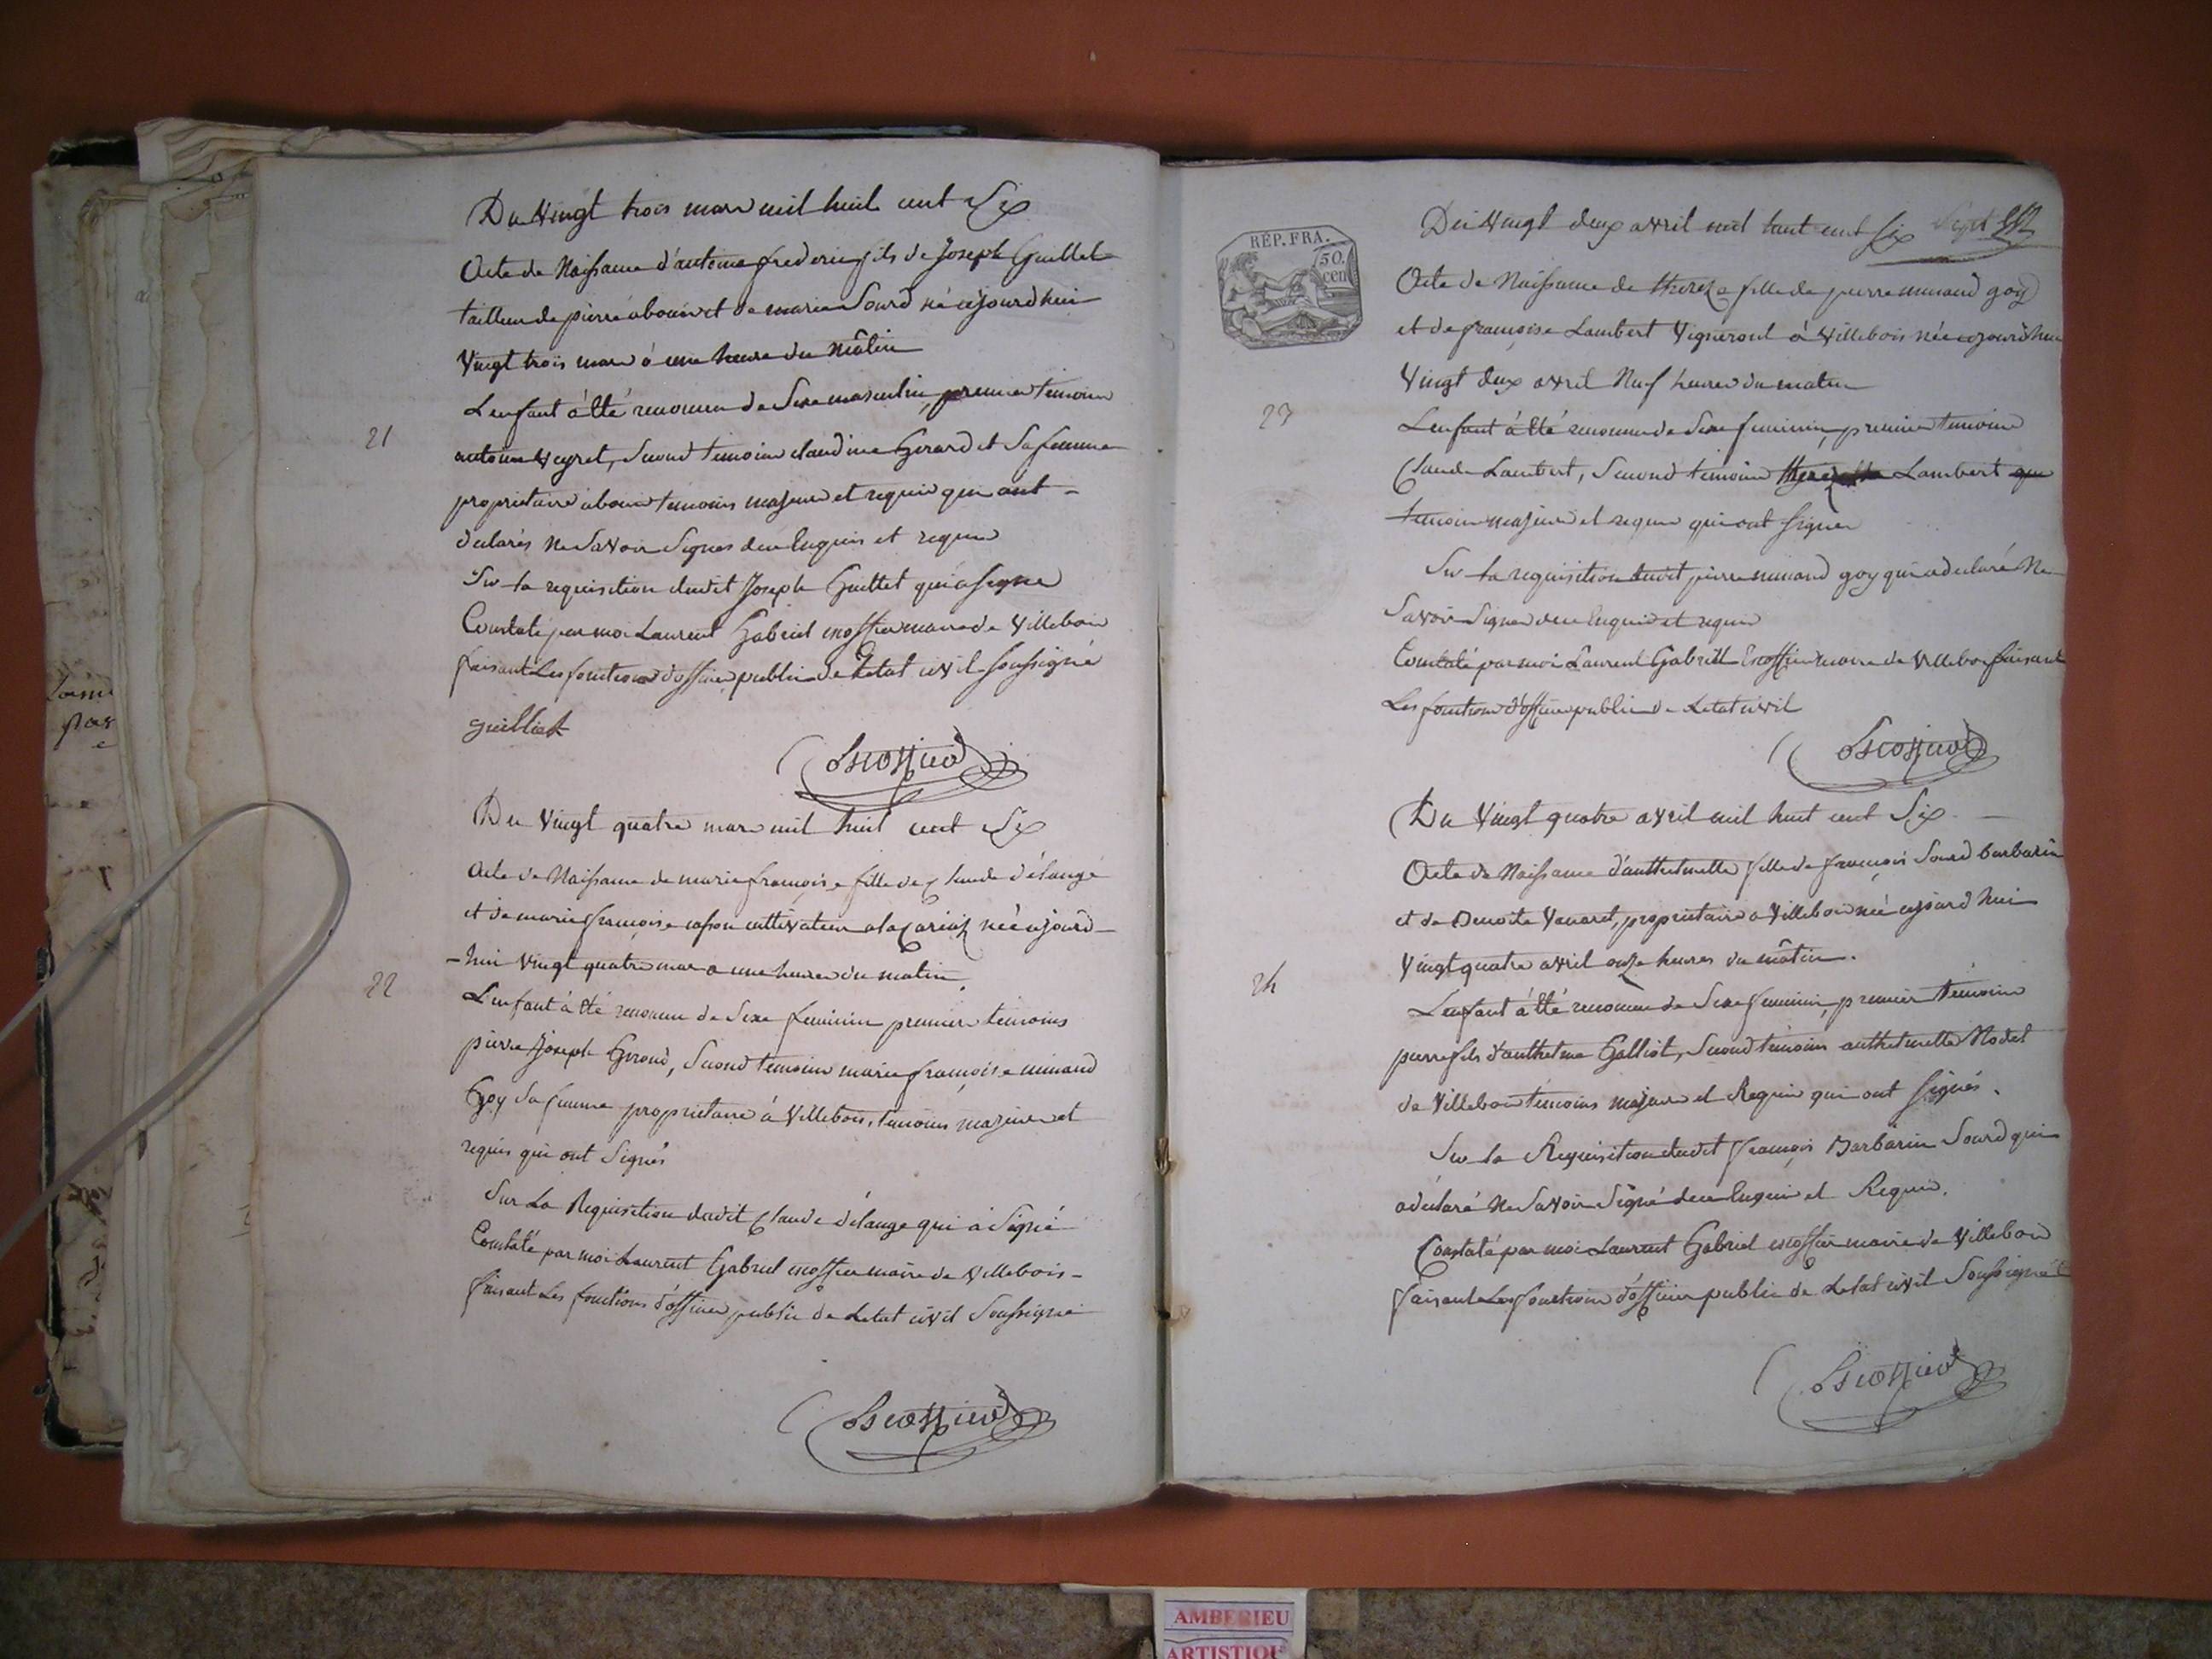 Du Vingt trois mars mil huit cent Six
Acte de Naissance d'antoine frederic fils de Joseph Guillet
tailleur de pierre a bouis et de marie Sourd né cejourd'hui
Vingt trois mars à une heure du mâtin
L'enfant à été reconnu de Sexe masculin, premier temoin
21
antoine Veyret, Second temoin claudine Gerard et Sa femme
proprietaire a bouis temoins majeurs et requis qui ont -
declarés ne Savoir Signer de ce Enquis et requis
Sur la requisition dudit Joseph Guillet qui a Signé
Constaté par moi Laurent Gabriel escoffier maire de Villebois
faisant Les fonctions d'officier public de Letat civil Soussigné
guilliet
Escoffier
Du Vingt quatre mars mil huit cent Six
Acte de Naissance de marie françoise fille de Claude délange
et de marie françoise cultivateur a la née cejourd-
-hui Vingt quatre mars a une heure du matin.
22
L'enfant à été reconnu de Sexe feminin premier temoins
pierre Joseph Giroud, Second temoin marie françoise minaud
Goy Sa femme proprietaire à Villebois, temoins majeurs et
requis qui ont Signés
Sur La Requisition dudit Claude délange qui à Signé
Constaté par moi Laurent Gabriel escoffier maire de Villebois -
faisant Les fonctions d'officier public de Letat civil Soussigné
Escoffier
Du Vingt deux avril mil huit cent Six Sept
REP. FRA.
50.
cen
Acte de Naissance de thereze fille de pierre minaud goy
et de françoise Lambert Vigneront à Villebois née cejourd'hui
Vingt deux avril Neuf heures du matin
23
L'enfant à été reconnu de Sexe feminin, premier temoin
Claude Lambert, Second temoin Lambert
temoins majeurs et requis qui ont Signer
Sur la requisition dudit pierre minaud goy qui a declaré Ne
Savoir Signer de ce Enquis et requis
Constaté par moi Laurent Gabriel Escoffier maire de Villebois faisant
Les fonctions d'officier public de Letat civil
Escoffier
Du Vingt quatre avril mil huit cent Six
Acte de Naissance d'anthelmette fille de françois Sourd barbarin
et de Benoite Vanaret, proprietaire a Villebois née cejourd'hui
Vingt quatre avril onze heures du mâtin.
24
L'enfant à été reconnu de Sexe feminin, premier témoin
pierre fils d'anthelme Galliot, Second temoins anthelmette Nodet
de Villebois temoins majeurs et Requis qui ont Signés.
Sur la Requisition dudit françois Barbarin Sourd qui
a déclaré Ne Savoir Signé de ce Enquis et Requis.
Constaté par moi Laurent Gabriel escoffier maire de Villebois
faisant Les fonctions d'officier public de Letat civil Soussigné
Escoffier
AMBERIEU
ARTISTIQUE